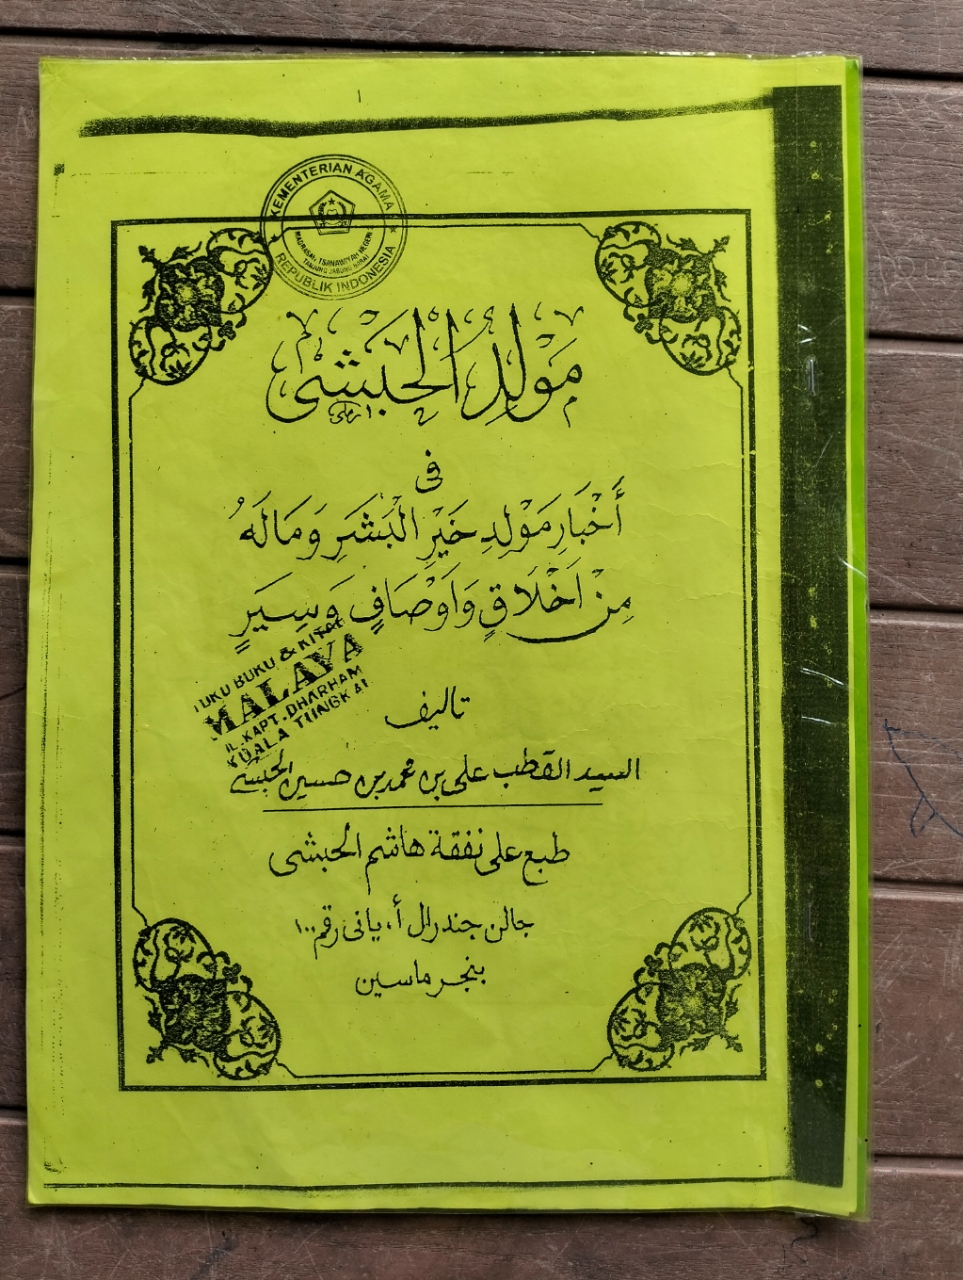 KEMENTERIAN AGAMA
MADRASAH TSANAWIYAH NEGERI
TANJUNG JABUNG BARAT
REPUBLIK INDONESIA
مَوْلِدُ الْحَبَشِى
فى
أَخْبَارِ مَوْلِدِ خَيْرِ الْبَشَرِ وَمَا لَهُ
مِنْ اَخْلَاقٍ وَاَوْصَافٍ وَسِيَرٍ
TUKU BUKU & KITAB
MALAYA
JL. KAPT. DHARHAM
KUALA TUNGKAL
تاليف
السيد القطب على بن محمد بن حسين الحبشى
طبع على نفقة هاشم الحبشى
جالن جندرال أ، يانى رقم ١٠٠
بنجر ماسين